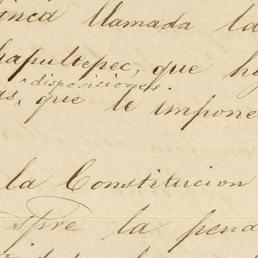 finca llamada la
hapultepec, que h
disposiciones
as, que le impone
la Constitucion
spre la pena